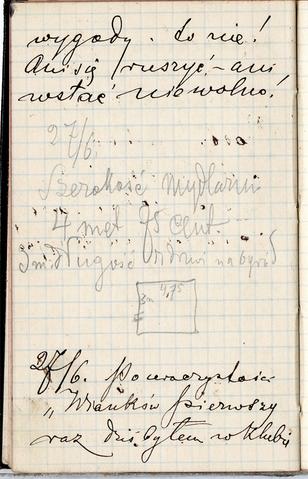 wygody. to nie!
Ani się ruszyć, - ani
wstać niewolno!
27/6.
Szerokość Mydlarni
4 met 75 cent.
3 m długość od drzwi na
3 m 4,75
27/6. Po uroczystości
„Wianków pierwszy
raz dziś byłem w Klubie